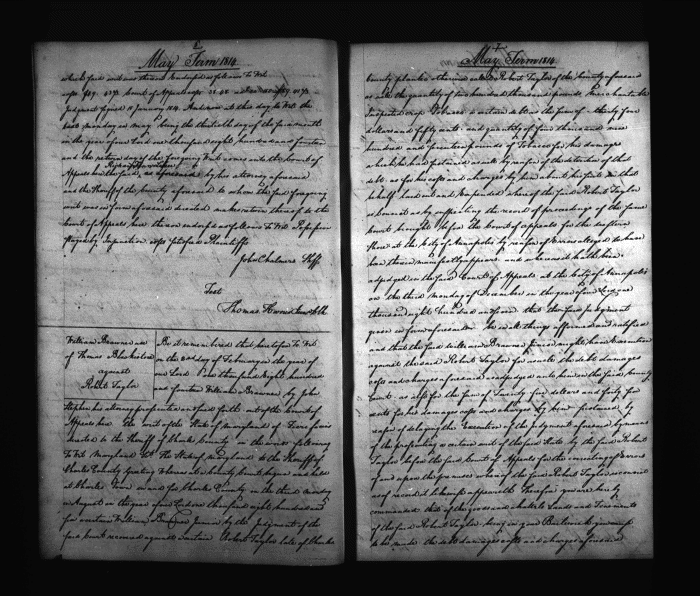 6
May Term 1814
which said writ was thereon endorsed as follows To Wit
Judgment signed 11 January 1814. And now at this day to Wit the
last monday in May being the thirtieth day of the same month
in the year of our Lord one thousand eight hundred and fourteen
and the return day of the foregoing Writ comes into the Court of
Appeals here the said by his attorney aforesaid
and the Sheriff of the County aforesaid to whom the said foregoing
writ was in form aforesaid directed makes return thereof to the
Court of Appeals here thereon endorsed as follows To Wit
Stayed by Injunction costs satisfied Plaintiffs
John Chalmers Shff
Test
Thomas Harris Junr Clk
William Brawner use
of Thomas Blackistone
against
Robert Taylor
Be it remembered that heretofore To Wit
on the 22nd day of February in the year of
our Lord One thousand Eight hundred
and fourteen William Brawner by John
Stephen his attorney prosecuted and sued forth out of the Court of
Appeals here the writ of the State of Maryland of Fiere facias
directed to the Sheriff of Charles County in the words following
To Wit Maryland Sct. The State of Maryland to the Sheriff of
Charles County Greeting Whereas at a County Court begun and held
at Charles Town in and for Charles County on the third monday
in August in the year of our Lord one thousand eight hundred and
five a certain William Brawner Junior by the Judgment of the
said Court recovered against a certain Robert Taylor late of Charles
7
May Term 1814
County planter otherwise called Robert Taylor of the County aforesaid
as well the quantity of five hundred thousand pounds Merchantable
Inspected crop Tobacco a certain debt as the sum of thirty four
dollars and fifty cents and quantity of five thousand nine
hundred and fourteen pounds of Tobacco for his damages
which he had sustained as well by reason of the detention of that
debt as for his costs and charges by him about his suit in that
behalf laid out and expended whereof the said Robert Taylor
is convict as by inspecting the record of proceedings of the same
Court brought before the Court of appeals for the western
Shore at the City of Annapolis by reason of Errors alleged to have
been therein manifestly appears and whereas it hath been
adjudged in the said Court of Appeals at the City of Annapolis
on the third monday of December in the year of our Lord one
thousand eight hundred and seven that the said judgment
given in form aforesaid be in all things affirmed and ratified
and that the said William Brawner Junior might have Execution
against the said Robert Taylor for as well the debt damages
costs and charges aforesaid adjudged unto him in the said County
Court as also for the sum of Twenty four dollars and forty four
cents for his damages costs and charges by him sustained by
reason of delaying the Execution of the Judgment aforesaid by means
of the prosecuting a certain writ of the said State by the said Robert
Taylor before the said Court of Appeals for the correcting of Errors
of and upon the premises whereof the said Robert Taylor is convict
as of record it likewise appeareth Therefore you are hereby
commanded that of the goods and chattels Lands and Tenements
of the said Robert Taylor being in your Bailiwick you cause
to be made the debt damages costs and charges aforesaid